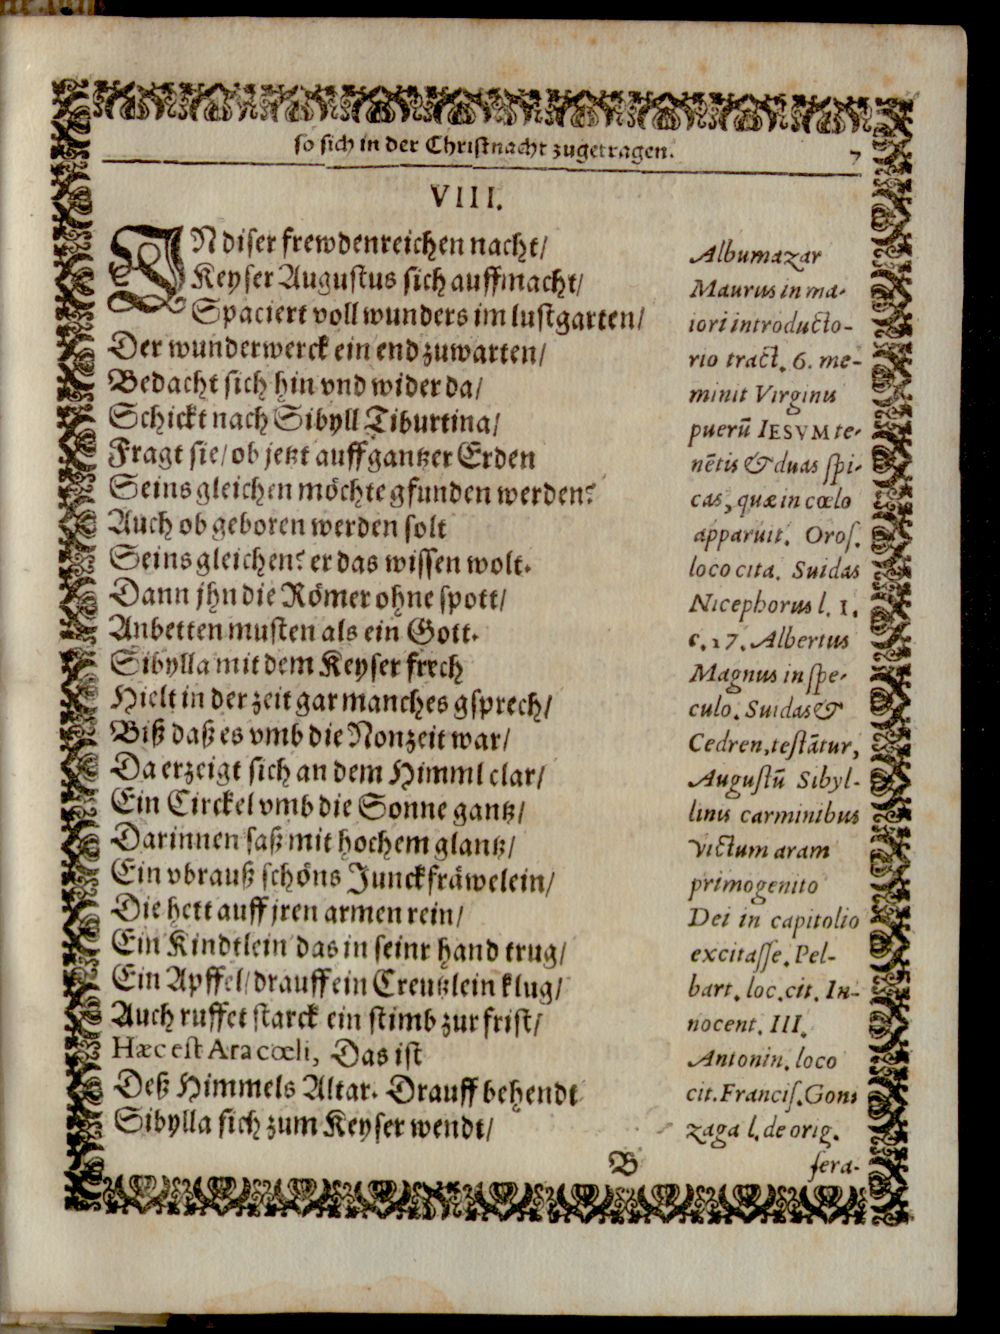 so sich in der Christnacht zugetragen. 7
VIII.
IN diser frewdenreichen nacht/
Keyser Augustus sich auffmacht/
Spaciert voll wunders im lustgarten/
Der wunderwerck ein end zuwarten/
Bedacht sich hin vnd wider da/
Schickt nach Sibyll Tiburtina/
Fragt sie/ ob jetzt auff gantzer Erden
Seins gleichen möchte gfunden werden?
Auch ob geboren werden solt
Seins gleichen? er das wissen wolt.
Dann jhn die Römer ohne spott/
Anbetten musten als ein Gott.
Sibylla mit dem Keyser frech
Hielt in der zeit gar manches gsprech/
Biß daß es vmb die Nonzeit war/
Da erzeigt sich an dem Himml clar/
Ein Circkel vmb die Sonne gantz/
Darinnen saß mit hochem glantz/
Ein vbrauß schöns Junckfräwelein/
Die hett auff jren armen rein/
Ein Kindtlein das in seinr hand trug/
Ein Apffel/ drauff ein Creutzlein klug/
Auch ruffet starck ein stimb zur frist/
Hæc est Ara cœli, Das ist
Deß Himmels Altar. Drauff behendt
Sibylla sich zum Keyser wendt/
Albumazar
Maurus in ma-
iori introducto-
rio tract. 6. me-
minit Virginis
puerū IESVM te-
nētis & duas spi-
cas, quæ in cœlo
apparuit. Oros.
loco cita. Suidas
Nicephorus l. 1.
c. 17. Albertus
Magnus in spe-
culo. Suidas &
Cedren, testātur,
Augustū Sibyl-
linis carminibus
victum aram
primogenito
Dei in capitolio
excitasse. Pel-
bart. loc. cit. In-
nocent. III.
Antonin. loco
cit. Francis. Gon
zaga l. de orig.
B sera-